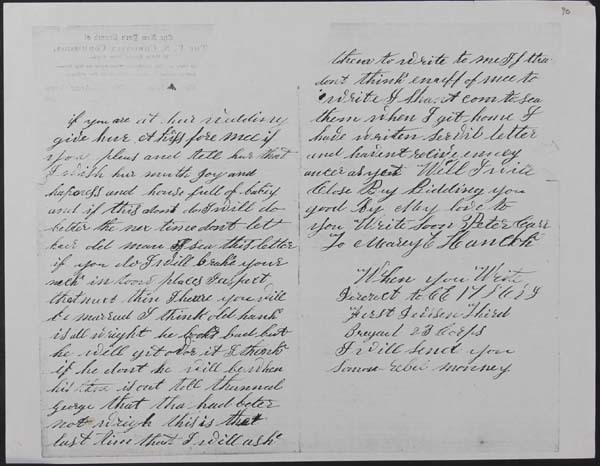 90
if you are at hur wedding
give hure a kiss fore mee if
you pleas and tell hur that
I wish hur much Joy and
hapness and house full of babiy
and if this dont do I will do
better the nex time dont let
hur old man see this letter
if you do I will brake youre
neck in places I expect
that next thin I heare you will
be marread I think old hank
is all wright he looks bad but
he will git over it I think
if he dont he will be when
his is out tell
George that tha had beter
not wrigh this is the
last time that I will ask
them to write to me If tha
dont think enouf of mee to
write I shant com to sea
them when I git home I
have writen sevril letter
and havent
ancer as yeat Well I will
Close By Bidding you
good By My love to
you Write Soon Peter Carr
To Mary C Hancok
When you Write
Direct to Co E 17 U S I
First Third
23 Corps
I will send you
Some rebel monney